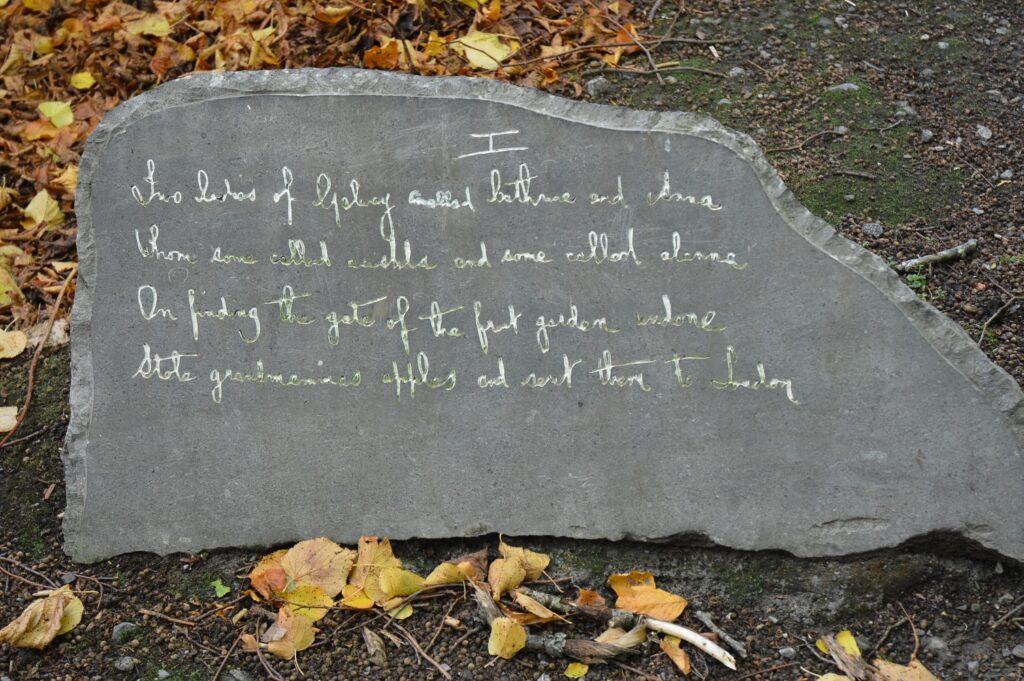 I
Two ladies of Galway called Cathrine and Anna
Whom some called acushla and some called alanna
On finding the gate of the fruit garden undone
Stole grandmamma's apples and sent them to London